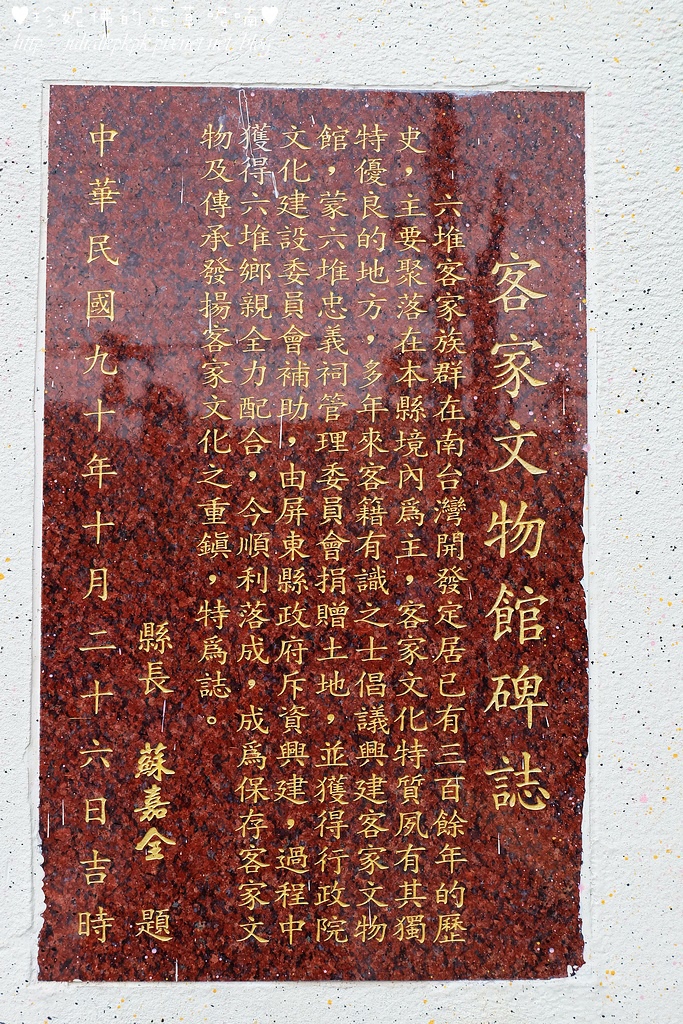 ♥珍妮佛的花草呢喃♥
客家文物館碑誌
六堆客家族群在南台灣開發定居已有三百餘年的歷
史，主要聚落在本縣境內為主，客家文化特質夙有其獨
特優良的地方，多年來客籍有識之士倡議興建客家文物
館，蒙六堆忠義祠管理委員會捐贈土地，並獲得行政院
文化建設委員會補助，由屏東縣政府斥資興建，過程中
獲得六堆鄉親全力配合，今順利落成，成為保存客家文
物及傳承發揚客家文化之重鎮，特為誌。
縣長 蘇嘉全 題
中華民國九十年十月二十六日吉時